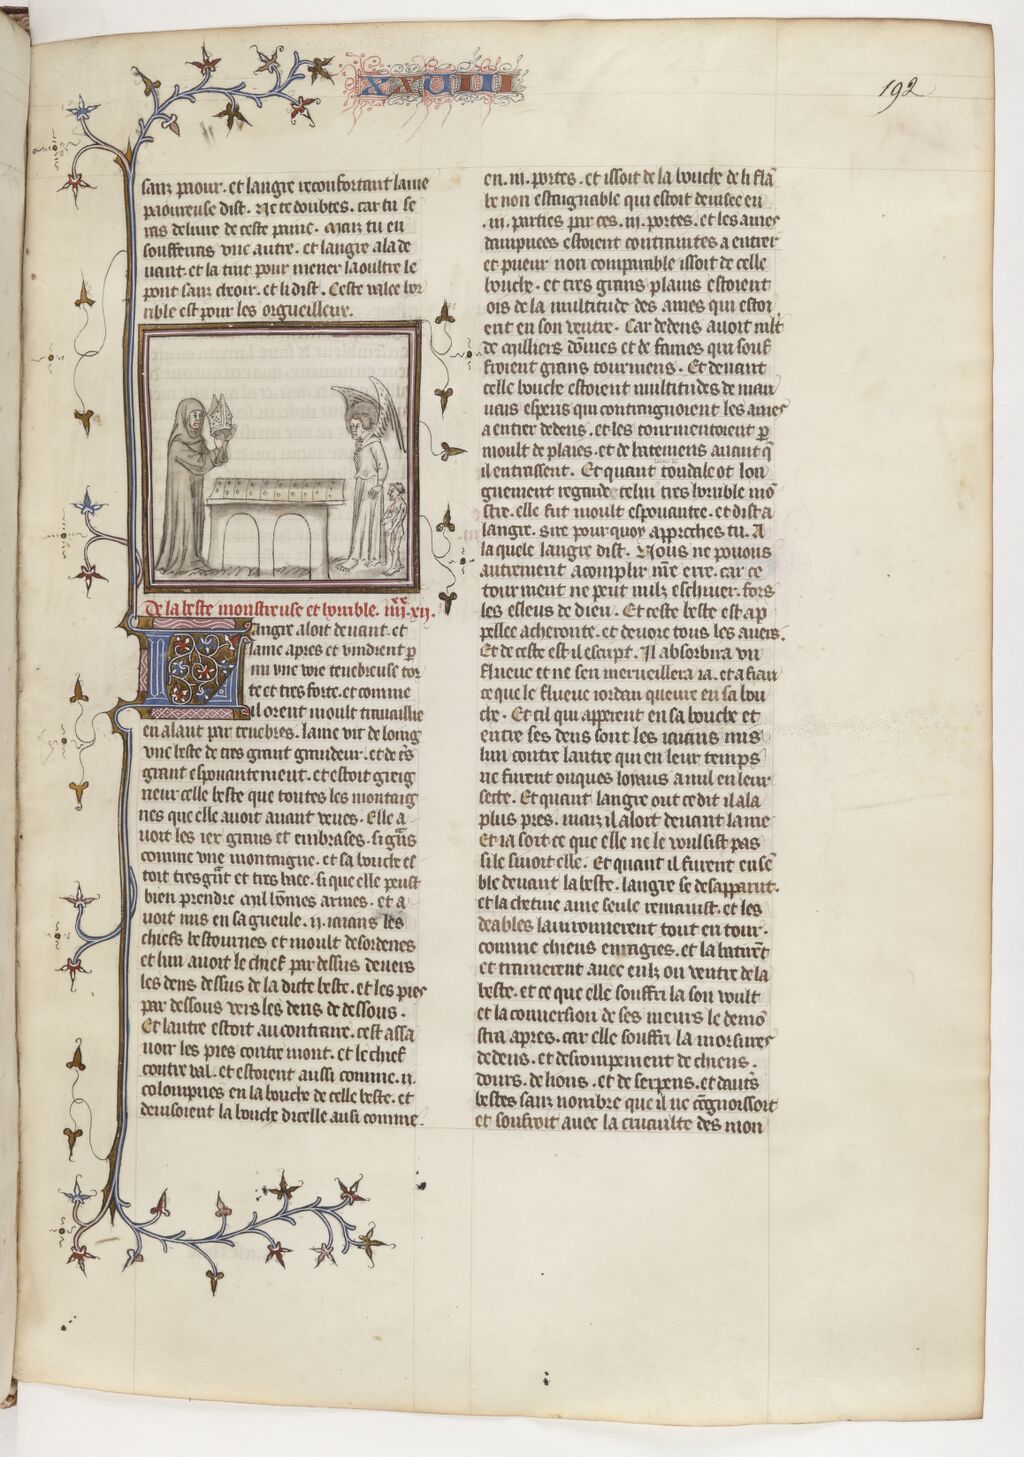 XXVIII
192
sanz paour. et langre reconfortant lame
paoureuse dist. Ne te doubtes. car tu se
ras deliure de ceste paine. Maiz tu en
soufferras vne autre. et langre ala de
uant. et la tint pour mener la oultre le
pont sanz cheoir. et li dist. Ceste valee hor
rible est pour les orgueilleux.
De la beste monstreuse et horrible. iiii.xx xii.
Langre aloit deuant. et
lame apres et vindrent p
mi vne voie tenebreuse tor
te et tres forte. et comme
il orent moult trauaillie
en alant par tenebres. lame vit de loing
vne beste de tres grant grandeur. et de tres
grant espouantement. et estoit greig
neur celle beste que toutes les montaig
nes que elle auoit auant veues. Elle a
uoit les iex grans et embrases. si grans
comme vne montaigne. et sa bouche es
toit tres grant et tres baee. si que elle peust
bien prendre mil hommes armes. et a
uoit mis en sa gueule .ij. iaians les
chiefs bestournes et moult desordenes
et lun auoit le chief par dessus deuers
les dens dessus de la dicte beste. et les piez
par dessous vers les dens de dessous.
Et lautre estoit au contraire. cest assa
uoir les piez contre mont. et le chief
contre val. et estoient aussi comme .ij.
colompnes en la bouche de celle beste. et
deuisoient la bouche dicelle ausi comme
en .iii. portes. et issoit de la bouche de li fla
be non estaignable qui estoit deuisee en
.iii. parties par ces .iii. portes. et les ames
dampnees estoient contraintes a entrer
et pueur non comparable issoit de celle
bouche. et tres grans plains estoient
ois de la multitude des ames qui estoi
ent en son ventre. Car dedens auoit mlt
de milliers dommes et de fames qui souf
froient grans tourmens. Et deuant
celle bouche estoient multitudes de mau
uais esperis qui contraignoient les ames
a entrer dedens. et les tourmentoient p
moult de plaies. et de batemens auant q
il entrassent. Et quant tondale ot lon
guement regarde celui tres horrible mo
stre. elle fut moult espouantee. et dist a
langre. sire pour quoy appreches tu. A
la quele langre dist. Nous ne pouons
autrement acomplir nre erre. car ce
tourment ne peut nulz eschiuer. fors
les esleus de dieu. Et ceste beste est ap
pellee acheronte. et deuore tous les auers.
Et de ceste est il escript. Il absorbira vn
flueue et ne sen merueillera ia. et a fian
ce que le flueue iordan queure en sa bou
che. Et cil qui apperent en sa bouche et
entre ses dens sont les iaians mis
lun contre lautre qui en leur temps
ne furent onques loyaus a nul en leur
secte. Et quant langre out ce dit il ala
plus pres. maiz il aloit deuant lame
Et ia soit ce que elle ne le voulsist pas
si le siuoit elle. Et quant il furent ense
ble deuant la beste. langre se desapparut.
et la chetiue ame seule remaint. et les
deables lauironnerent tout en tour.
comme chiens enragies. et la batirent
et trainerent auec eulz ou ventre de la
beste. et ce que elle souffri la son voult
et la conuersion de ses meurs le demo
stra apres. car elle souffri la morsures
de dens. et desrompement de chiens.
dours. de lions. et de serpens. et dautres
bestes sanz nombre que il ne congnoissoit
et soufroit auec la cruaulte des mon